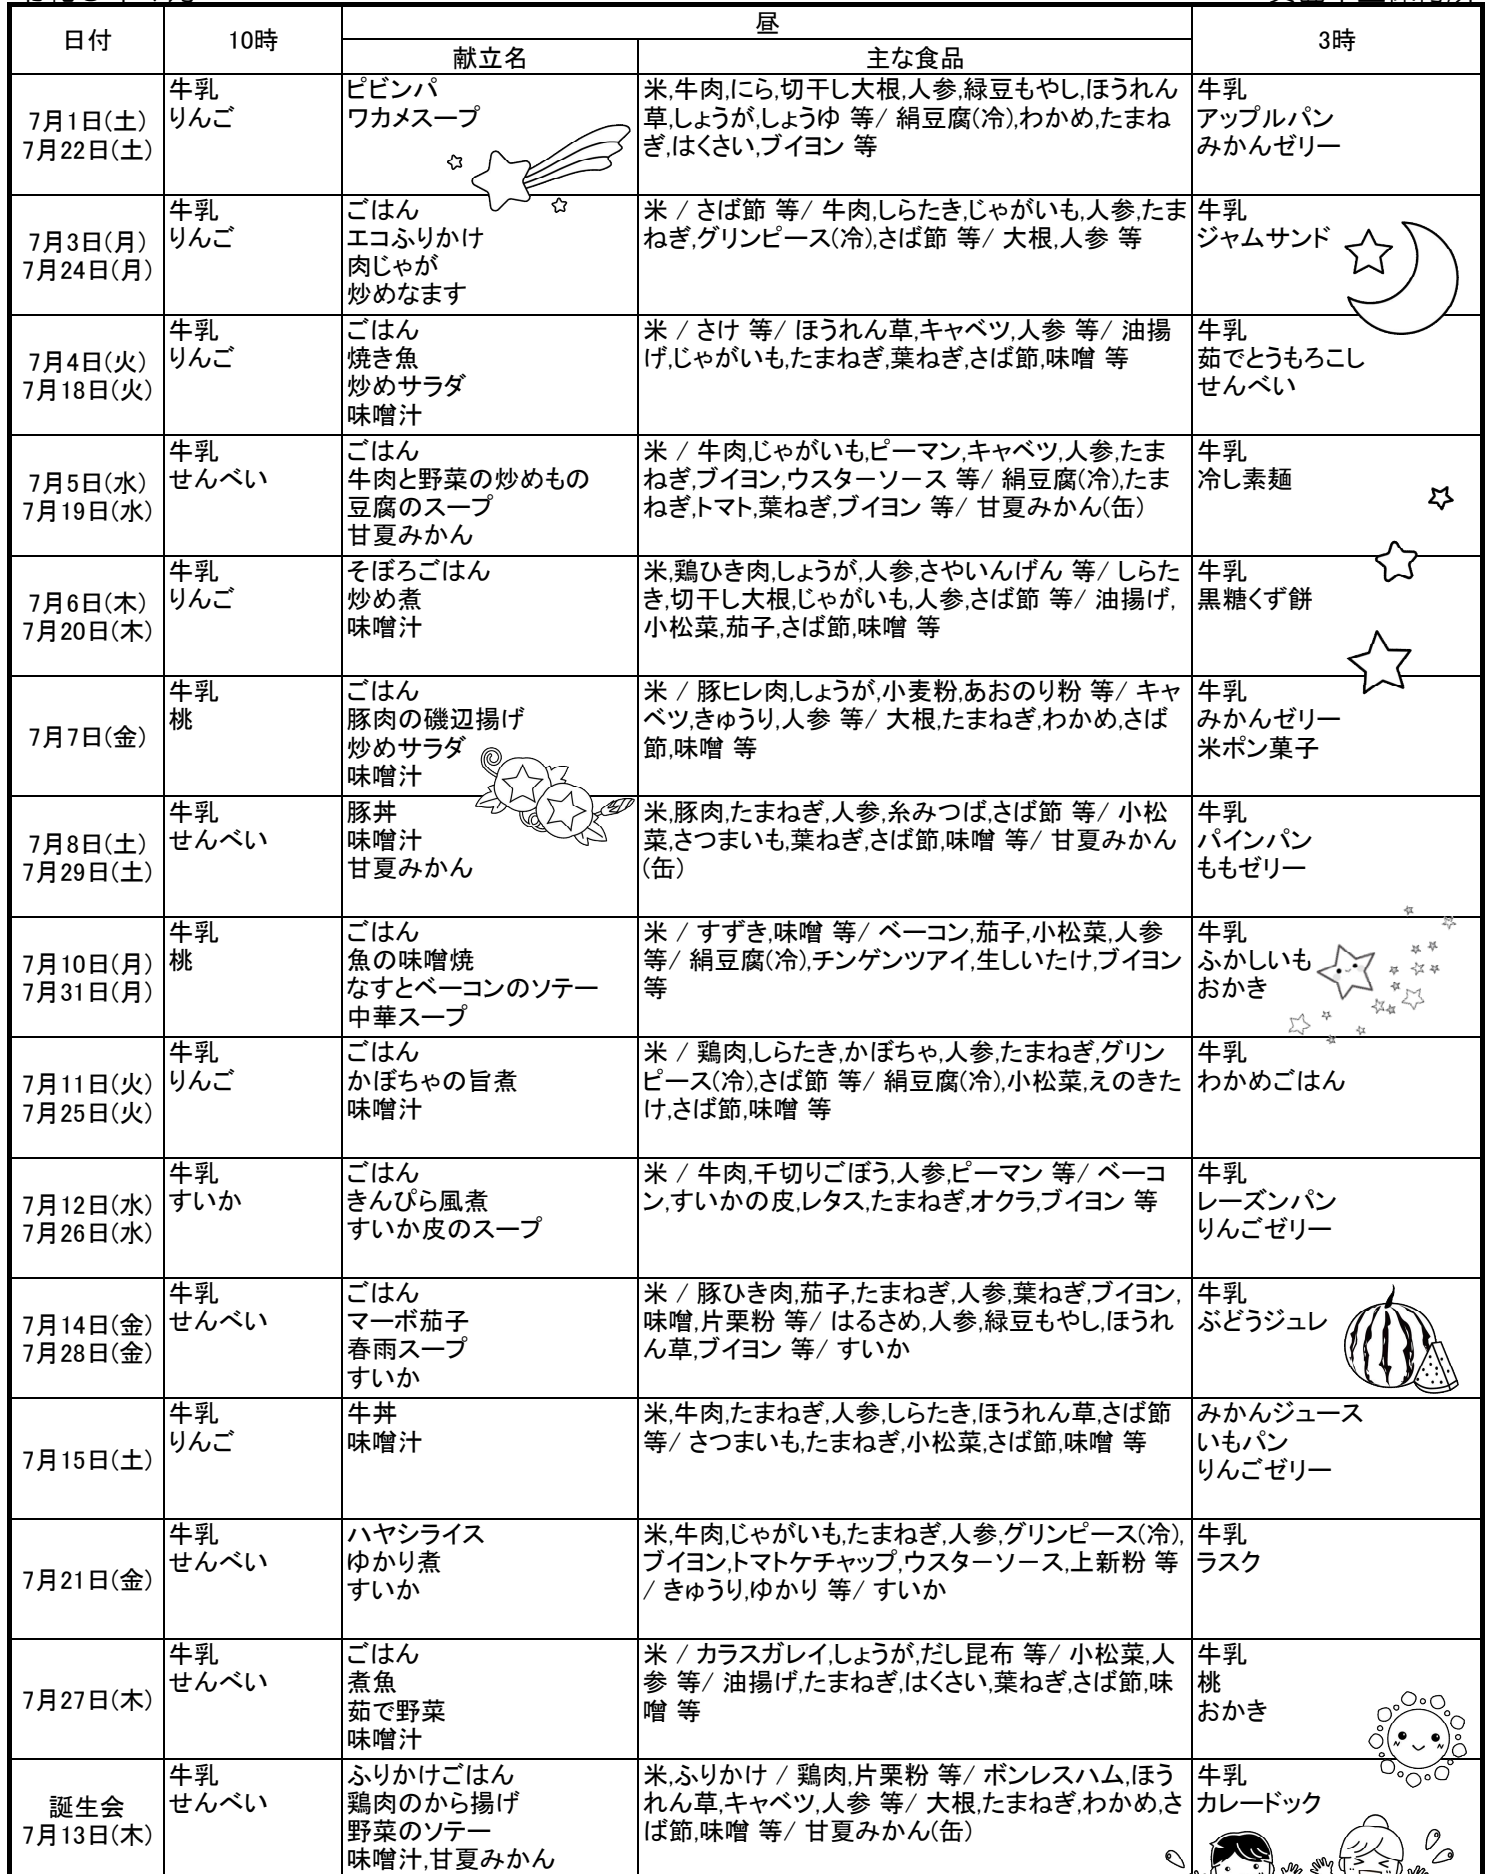 日付
10時
昼
3時
献立名
主な食品
7月1日(土)
7月22日(土)
牛乳
りんご
ピビンパ
ワカメスープ
米,牛肉,にら,切干し大根,人参,緑豆もやし,ほうれん
草,しょうが,しょうゆ 等/ 絹豆腐(冷),わかめ,たまね
ぎ,はくさい,ブイヨン 等
牛乳
アップルパン
みかんゼリー
7月3日(月)
7月24日(月)
牛乳
りんご
ごはん
エコふりかけ
肉じゃが
炒めなます
米 / さば節 等/ 牛肉,しらたき,じゃがいも,人参,たま
ねぎ,グリンピース(冷),さば節 等/ 大根,人参 等
牛乳
ジャムサンド
7月4日(火)
7月18日(火)
牛乳
りんご
ごはん
焼き魚
炒めサラダ
味噌汁
米 / さけ 等/ ほうれん草,キャベツ,人参 等/ 油揚
げ,じゃがいも,たまねぎ,葉ねぎ,さば節,味噌 等
牛乳
茹でとうもろこし
せんべい
7月5日(水)
7月19日(水)
牛乳
せんべい
ごはん
牛肉と野菜の炒めもの
豆腐のスープ
甘夏みかん
米 / 牛肉,じゃがいも,ピーマン,キャベツ,人参,たま
ねぎ,ブイヨン,ウスターソース 等/ 絹豆腐(冷),たま
ねぎ,トマト,葉ねぎ,ブイヨン 等/ 甘夏みかん(缶)
牛乳
冷し素麺
7月6日(木)
7月20日(木)
牛乳
りんご
そぼろごはん
炒め煮
味噌汁
米,鶏ひき肉,しょうが,人参,さやいんげん 等/ しらた
き,切干し大根,じゃがいも,人参,さば節 等/ 油揚げ,
小松菜,茄子,さば節,味噌 等
牛乳
黒糖くず餅
7月7日(金)
牛乳
桃
ごはん
豚肉の磯辺揚げ
炒めサラダ
味噌汁
米 / 豚ヒレ肉,しょうが,小麦粉,あおのり粉 等/ キャ
ベツ,きゅうり,人参 等/ 大根,たまねぎ,わかめ,さば
節,味噌 等
牛乳
みかんゼリー
米ポン菓子
7月8日(土)
7月29日(土)
牛乳
せんべい
豚丼
味噌汁
甘夏みかん
米,豚肉,たまねぎ,人参,糸みつば,さば節 等/ 小松
菜,さつまいも,葉ねぎ,さば節,味噌 等/ 甘夏みかん
(缶)
牛乳
パインパン
ももゼリー
7月10日(月)
7月31日(月)
牛乳
桃
ごはん
魚の味噌焼
なすとベーコンのソテー
中華スープ
米 / すずき,味噌 等/ ベーコン,茄子,小松菜,人参
等/ 絹豆腐(冷),チンゲンツアイ,生しいたけ,ブイヨン
等
牛乳
ふかしいも
おかき
7月11日(火)
7月25日(火)
牛乳
りんご
ごはん
かぼちゃの旨煮
味噌汁
米 / 鶏肉,しらたき,かぼちゃ,人参,たまねぎ,グリン
ピース(冷),さば節 等/ 絹豆腐(冷),小松菜,えのきた
け,さば節,味噌 等
牛乳
わかめごはん
7月12日(水)
7月26日(水)
牛乳
すいか
ごはん
きんぴら風煮
すいか皮のスープ
米 / 牛肉,千切りごぼう,人参,ピーマン 等/ ベーコ
ン,すいかの皮,レタス,たまねぎ,オクラ,ブイヨン 等
牛乳
レーズンパン
りんごゼリー
7月14日(金)
7月28日(金)
牛乳
せんべい
ごはん
マーボ茄子
春雨スープ
すいか
米 / 豚ひき肉,茄子,たまねぎ,人参,葉ねぎ,ブイヨン,
味噌,片栗粉 等/ はるさめ,人参,緑豆もやし,ほうれ
ん草,ブイヨン 等/ すいか
牛乳
ぶどうジュレ
7月15日(土)
牛乳
りんご
牛丼
味噌汁
米,牛肉,たまねぎ,人参,しらたき,ほうれん草,さば節
等/ さつまいも,たまねぎ,小松菜,さば節,味噌 等
みかんジュース
いもパン
りんごゼリー
7月21日(金)
牛乳
せんべい
ハヤシライス
ゆかり煮
すいか
米,牛肉,じゃがいも,たまねぎ,人参,グリンピース(冷),
ブイヨン,トマトケチャップ,ウスターソース,上新粉 等
/ きゅうり,ゆかり 等/ すいか
牛乳
ラスク
7月27日(木)
牛乳
せんべい
ごはん
煮魚
茹で野菜
味噌汁
米 / カラスガレイ,しょうが,だし昆布 等/ 小松菜,人
参 等/ 油揚げ,たまねぎ,はくさい,葉ねぎ,さば節,味
噌 等
牛乳
桃
おかき
誕生会
7月13日(木)
牛乳
せんべい
ふりかけごはん
鶏肉のから揚げ
野菜のソテー
味噌汁,甘夏みかん
米,ふりかけ / 鶏肉,片栗粉 等/ ボンレスハム,ほう
れん草,キャベツ,人参 等/ 大根,たまねぎ,わかめ,さ
ば節,味噌 等/ 甘夏みかん(缶)
牛乳
カレードック